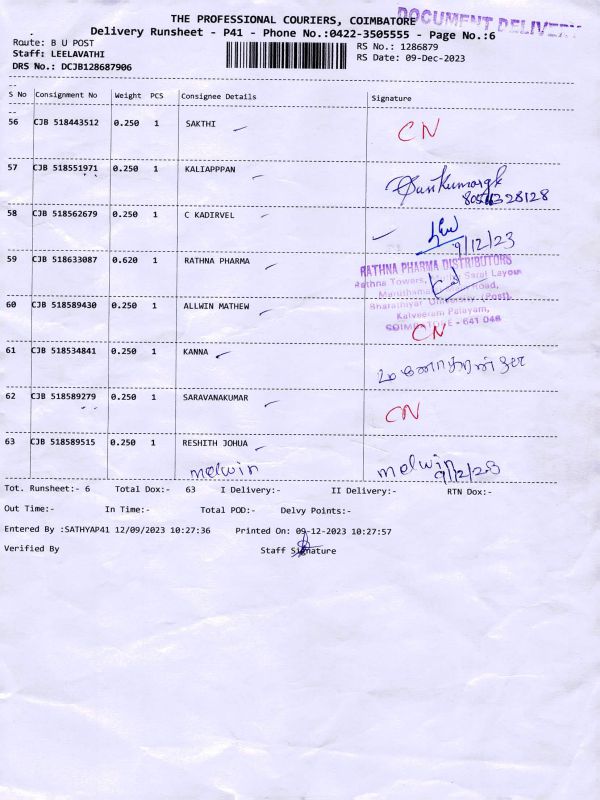 THE PROFESSIONAL COURIERS, COIMBATORE
DOCUMENT DELIVE
Delivery Runsheet - P41 - Phone No.:0422-3505555 - Page No.:6
Route: B U POST
RS No.: 1286879
Staff: LEELAVATHI
RS Date: 09-Dec-2023
DRS No.: DCJB128687906
S No Consignment No Weight PCS Consignee Details Signature
56 CJB 518443512 0.250 1 SAKTHI CN
57 CJB 518551971 0.250 1 KALIAPPPAN
58 CJB 518562679 0.250 1 C KADIRVEL
9/12/23
59 CJB 518633087 0.620 1 RATHNA PHARMA
RATHNA PHARMA DISTRIBUTORS
Rathna Towers, Sarai Layout
Road,
Bharathiyar University (Post),
Kalveeram Palayam,
COIMBATORE - 641 046
60 CJB 518589430 0.250 1 ALLWIN MATHEW CN
61 CJB 518534841 0.250 1 KANNA
62 CJB 518589279 0.250 1 SARAVANAKUMAR CN
63 CJB 518589515 0.250 1 RESHITH JOHUA
melwin melwin 9/12/23
Tot. Runsheet:- 6 Total Dox:- 63 I Delivery:- II Delivery:- RTN Dox:-
Out Time:- In Time:- Total POD:- Delvy Points:-
Entered By :SATHYAP41 12/09/2023 10:27:36 Printed On: 09-12-2023 10:27:57
Verified By Staff Signature